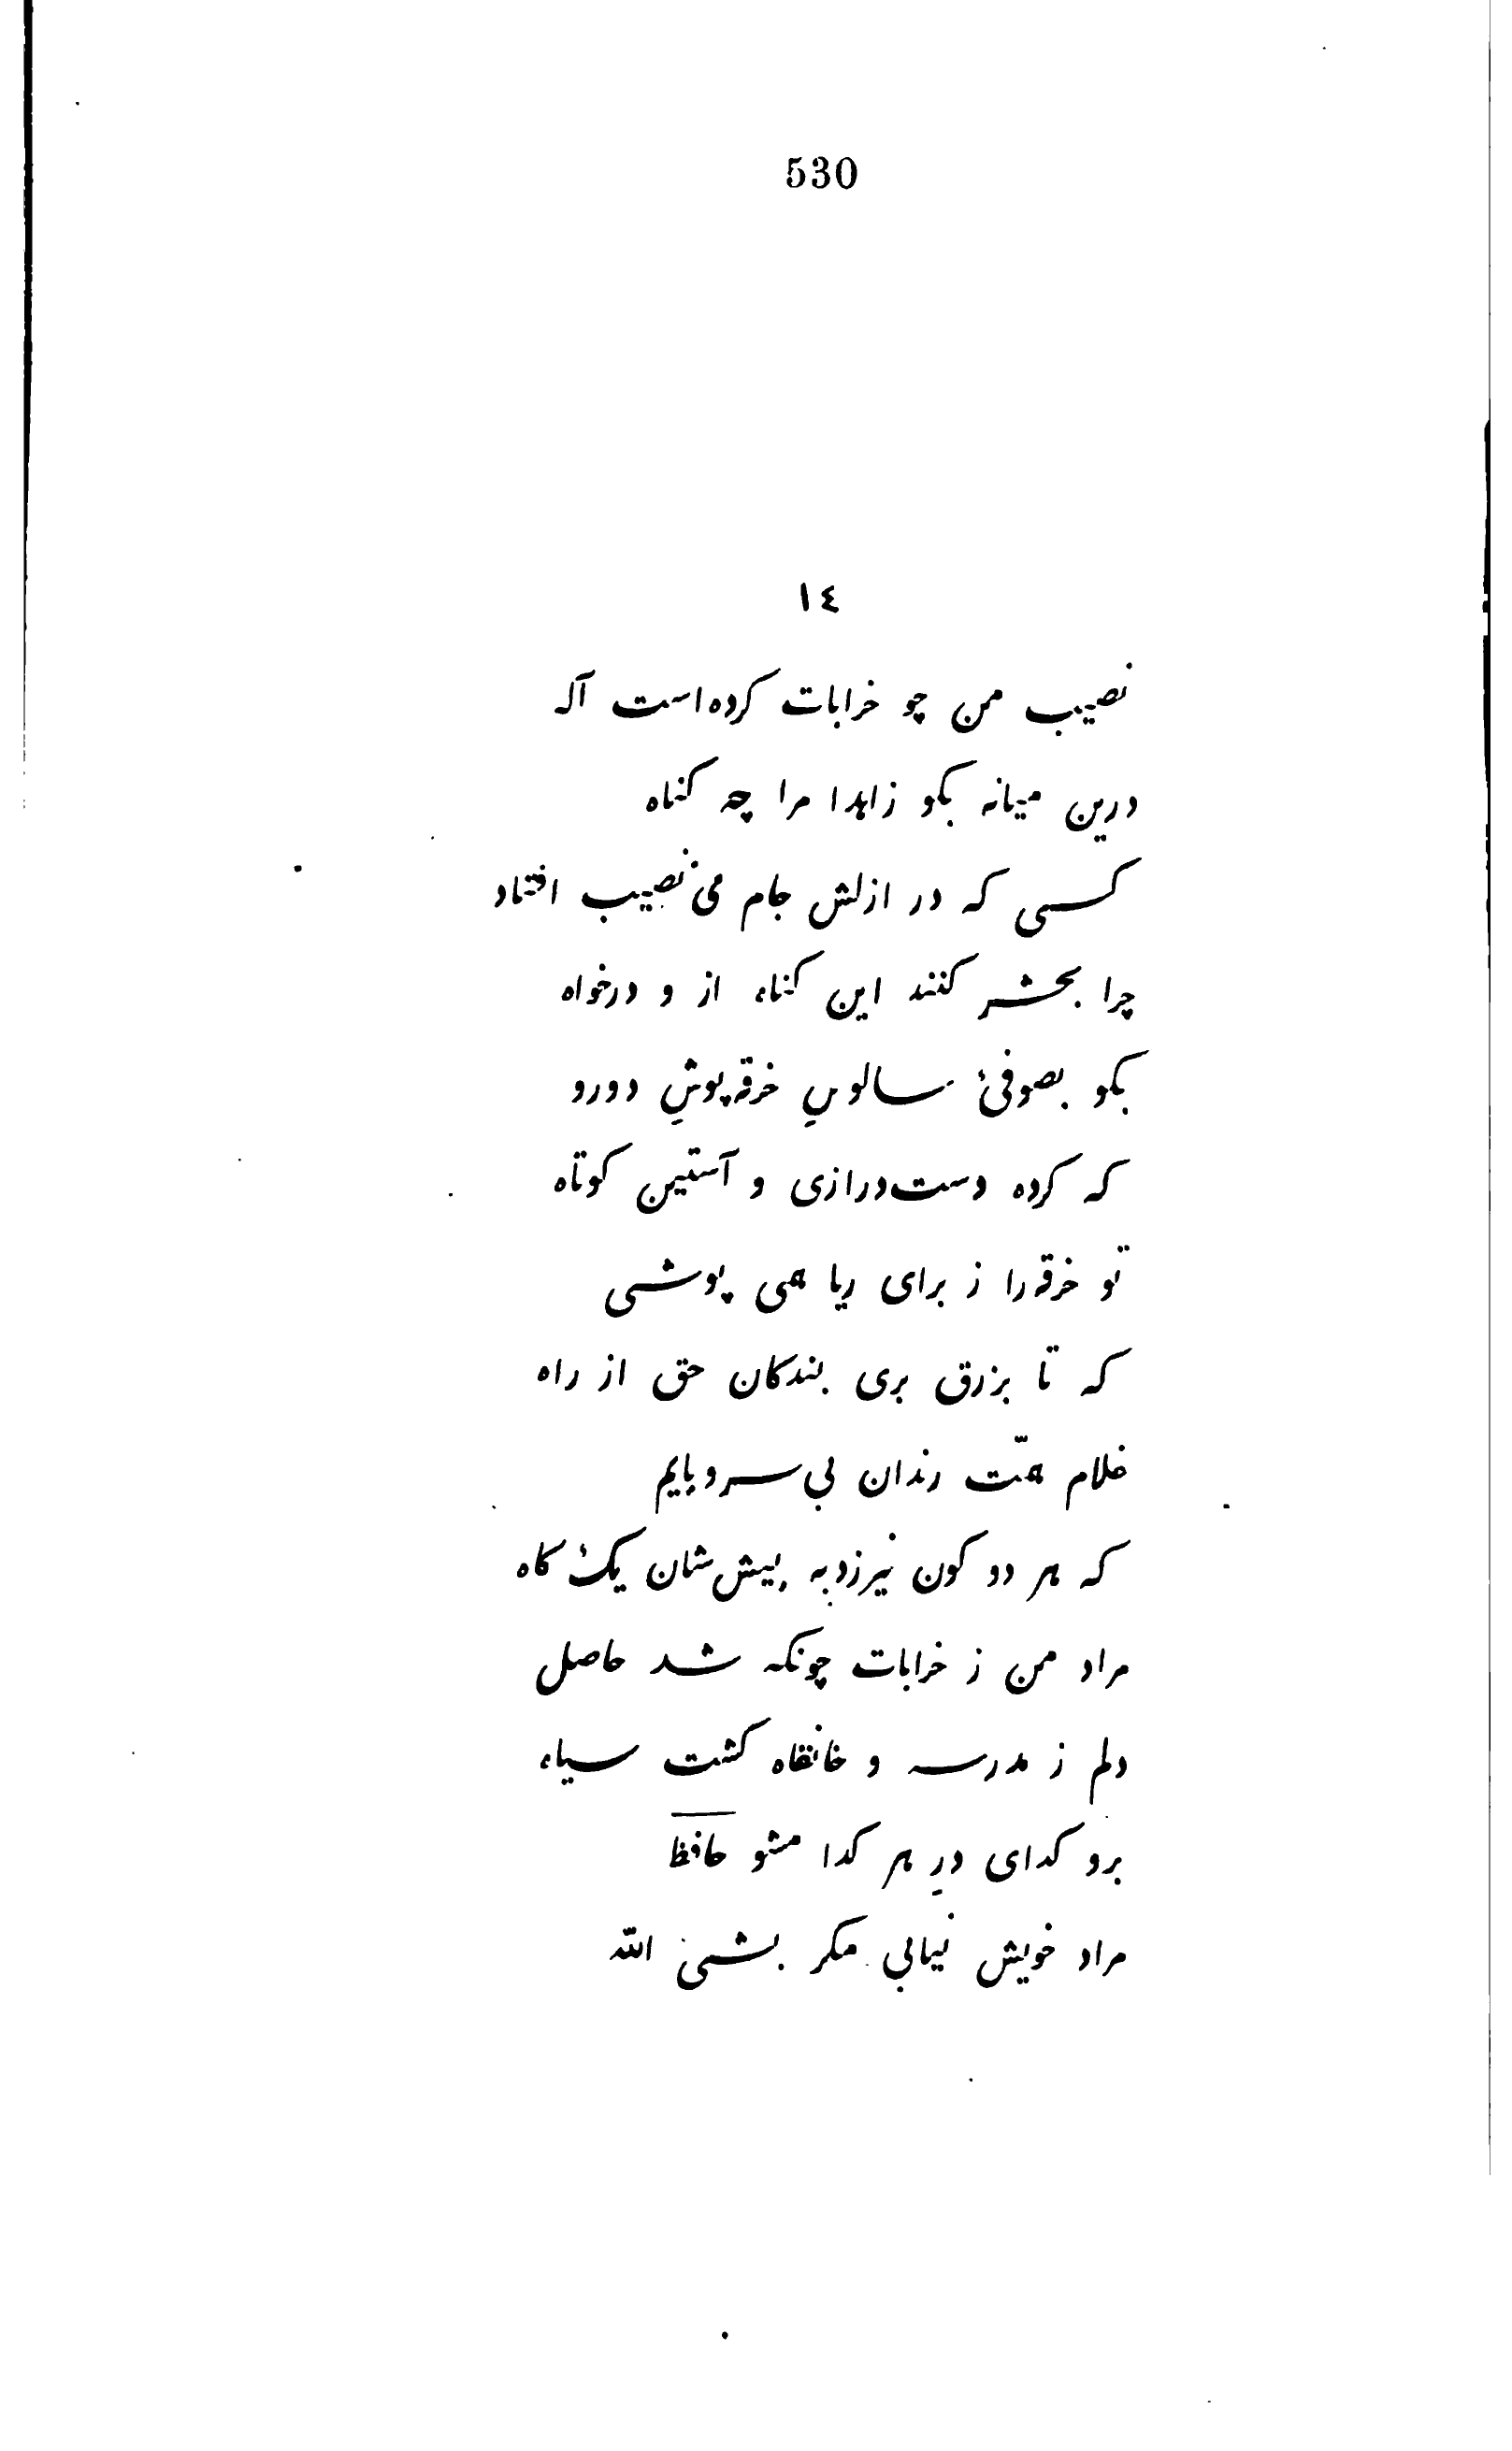 530
١٤
نصیب من چو خرابات کرده‌است آله
درین میانه بکو زاهدا مرا چه کناه
کسی که در ازلش جام می نصیب افتاد
چرا بحشر کنند این کناه از و درخواه
بکو بصوفیٔ سالوسِ خرقه‌پوشِ دورو
که کرده دست‌درازی و آستین کوتاه
تو خرقه‌را ز برای ریا همی پوشی
که تا بزرق بری بندکان حق از راه
غلام همّت رندان بی‌سروپایم
که هر دو کون نیرزد به پیش‌شان یک کاه
مراد من ز خرابات چونکه شد حاصل
دلم ز مدرسه و خانقاه کشت سیاه
برو کدای درِ هر کدا مشو حافظ
مراد خویش نیابی مکر بشیٔ الله